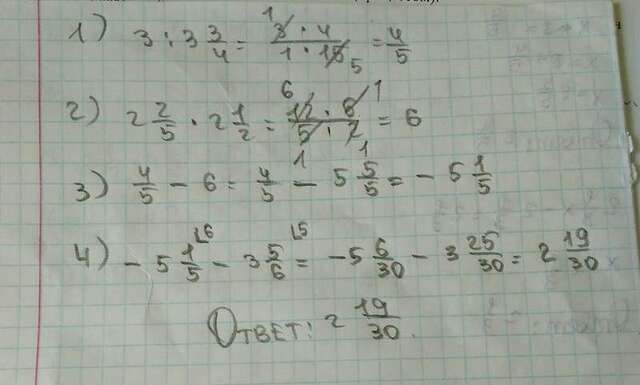 1) 3 : 3 3/4 = 3 · 4 / 1 · 15 = 4/5
2) 2 2/5 · 2 1/2 = 12 · 5 / 5 · 2 = 6
3) 4/5 - 6 = 4/5 - 5 5/5 = - 5 1/5
4) - 5 1/5 - 3 5/6 = - 5 6/30 - 3 25/30 = 2 19/30
Ответ: 2 19/30.